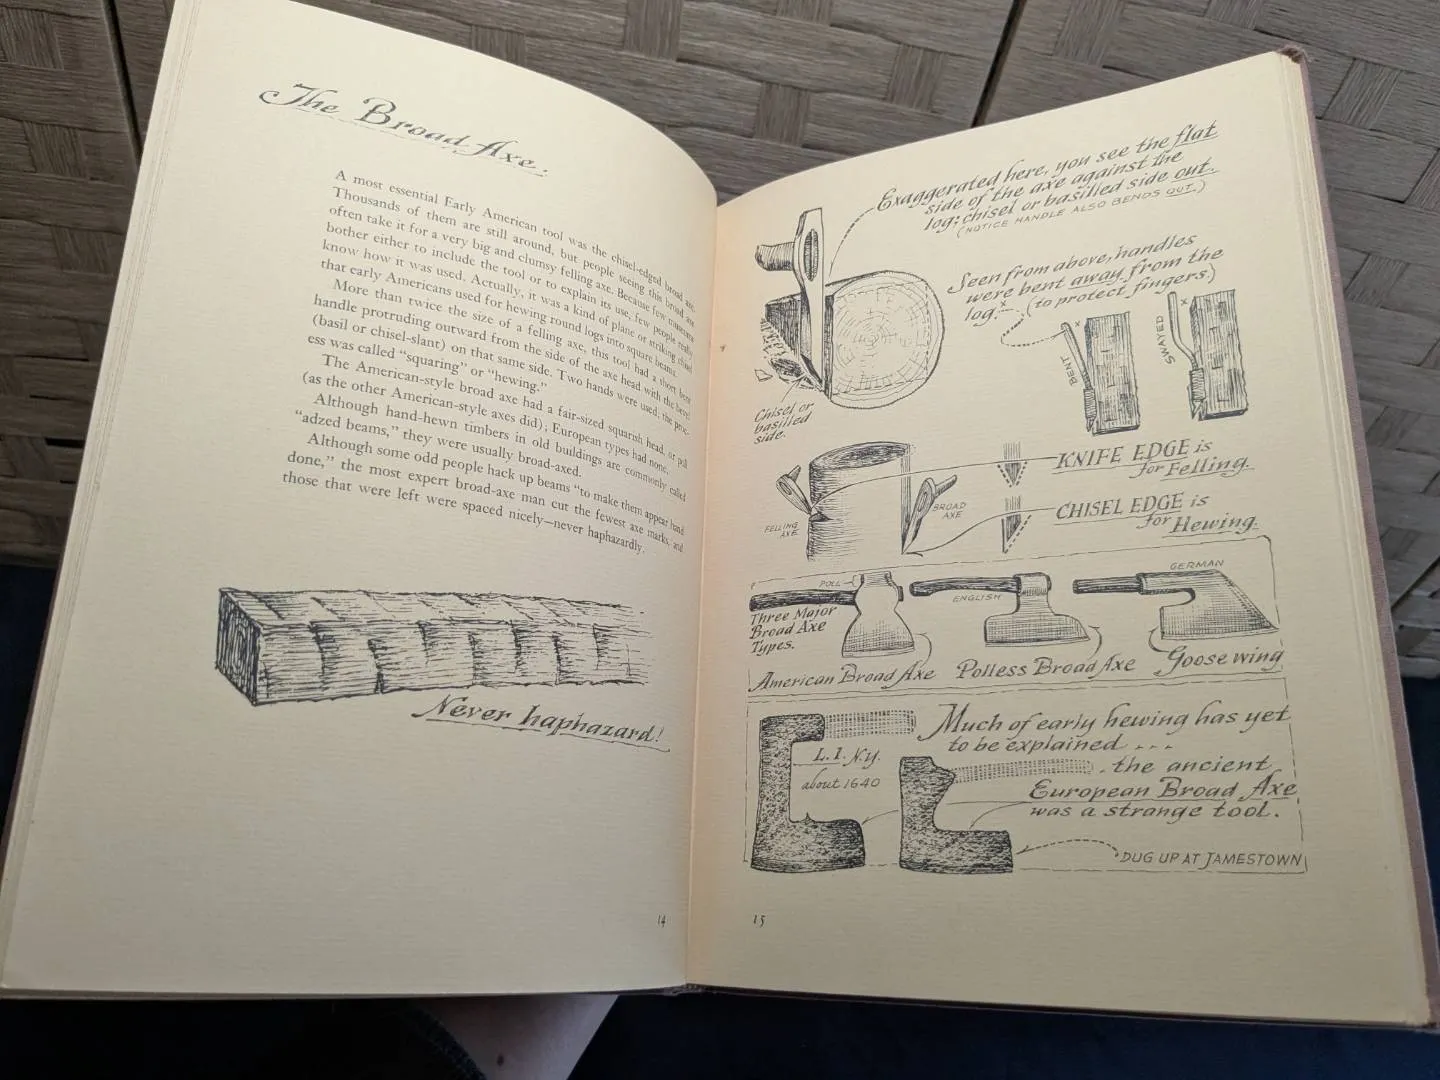 The Broad Axe.
A most essential Early American tool was the chisel-edged broad axe.
Thousands of them are still around, but people seeing this broad axe
often take it for a very big and clumsy felling axe. Because few museums
bother either to include the tool or to explain its use, few people really
know how it was used. Actually, it was a kind of plane or striking chisel
that early Americans used for hewing round logs into square beams.
More than twice the size of a felling axe, this tool had a short bent
handle protruding outward from the side of the axe head with the bevel
(basil or chisel-slant) on that same side. Two hands were used; the proc-
ess was called "squaring" or "hewing."
The American-style broad axe had a fair-sized squarish head, or poll
(as the other American-style axes did); European types had none.
Although hand-hewn timbers in old buildings are commonly called
"adzed beams," they were usually broad-axed.
Although some odd people hack up beams "to make them appear hand
done," the most expert broad-axe man cut the fewest axe marks, and
those that were left were spaced nicely—never haphazardly.
Never haphazard!
14
Exaggerated here, you see the flat
side of the axe against the
log; chisel or basilled side out.
(NOTICE HANDLE ALSO BENDS OUT.)
Chisel or
basilled
side.
Seen from above, handles
were bent away from the
log. x (to protect fingers.)
x
BENT
x
SWAYED
FELLING
AXE
BROAD
AXE
KNIFE EDGE is
for Felling.
CHISEL EDGE is
for Hewing.
POLL
ENGLISH
GERMAN
Three Major
Broad Axe
Types.
American Broad Axe
Polless Broad Axe
Goosewing
Much of early hewing has yet
to be explained . . .
L. I. N.Y.
about 1640
. the ancient
European Broad Axe
was a strange tool.
DUG UP AT JAMESTOWN
15